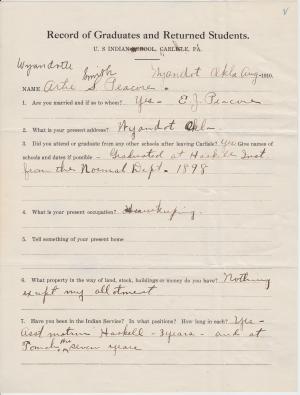 Record of Graduates and Returned Students.
U. S. INDIAN SCHOOL, CARLISLE, PA.
Wyandotte
Smith
Wyandot Okla Aug 1910.
NAME Artie S Peacore.
1. Are you married and if so to whom? Yes - E. J. Peacore
2. What is your present address? Wyandot Okla.
3. Did you attend or graduate from any other schools after leaving Carlisle? Yes Give names of
schools and dates if possible - Graduated at Haskell Inst.
from the Normal Dept - 1898
4. What is your present occupation? Housekeeping.
5. Tell something of your present home
6. What property in the way of land, stock, buildings or money do you have? Nothing
exept my allotment
7. Have you been in the Indian Service? In what positions? How long in each? Yes -
Asst matron Haskell - 3 years - and at
seven years